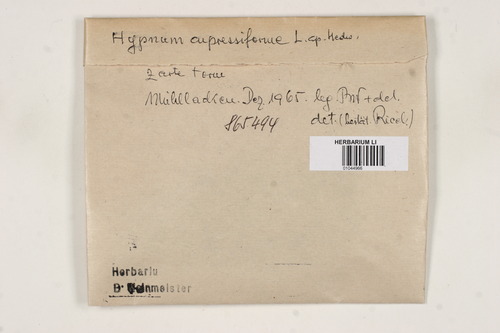 Hypnum cupressiforme L. ap. Hedw.
zarte Form
Mühllacken. Dez 1965. leg. + det.
865494 det.
HERBARIUM LI
01044966
Herbariu
B. Weinmeister